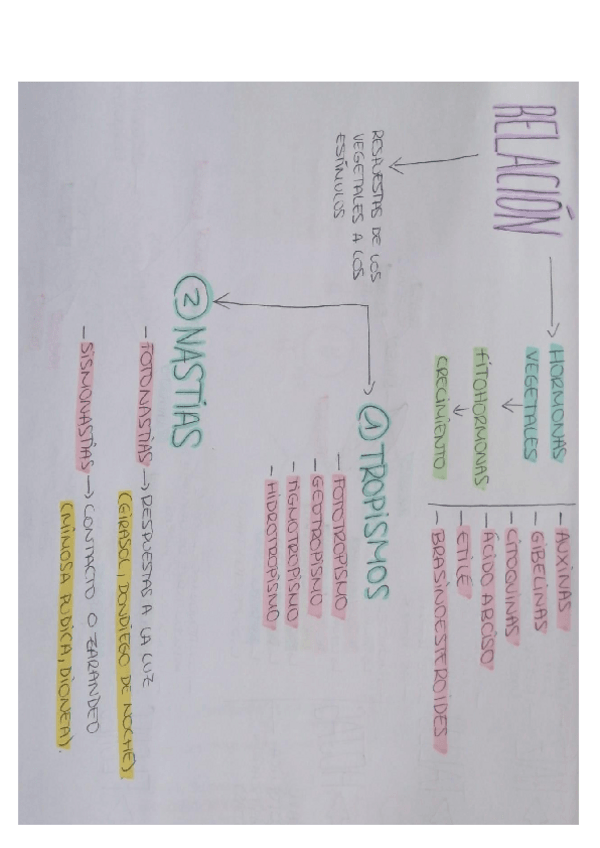 RELACIÓN
HORMONAS
VEGETALES
FITOHORMONAS
CRECIMIENTO
- AUXINAS
- GIBELINAS
- CITOQUINAS
- ÁCIDO ABCISO
- ETILE
- BRASINOESTEROIDES
RESPUESTAS DE LOS
VEGETALES A LOS
ESTÍMULOS
1 TROPISMOS
- FOTOTROPISMO
- GEOTROPISMO
- TIGMOTROPISMO
- HIDROTROPISMO
2 NASTIAS
- FOTONASTIAS → RESPUESTAS A LA LUZ
(GIRASOL, DONDIEGO DE NOCHE)
- SISMONASTIAS → CONTACTO O ZARANDEO
(MIMOSA PUDICA, DIONEA).